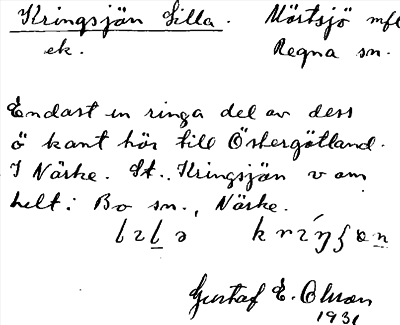 Kringsjön Lilla. Mörtsjö mfl
ek. Regna sn.
Endast en ringa del av dess
ö kant hör till Östergötland.
I Närke. St.. Kringsjön v om
helt i Bo sn., Närke.
Gustaf E. Olson
1931